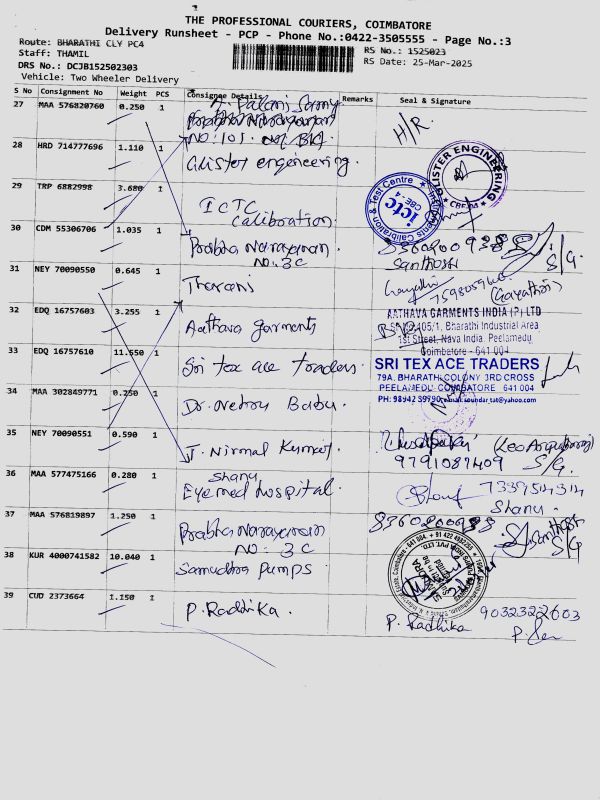 THE PROFESSIONAL COURIERS, COIMBATORE
Delivery Runsheet - PCP - Phone No.:0422-3505555 - Page No.:3
Route: BHARATHI CLY PC4
Staff: THAMIL
DRS No.: DCJB152502303
Vehicle: Two Wheeler Delivery
RS No.: 1525023
RS Date: 25-Mar-2025
S No Consignment No Weight PCS Consignee Details Remarks Seal & Signature
27 MAA 576820760 0.250 1 A. Palani Samy
Prabha Narayanan
NO: 101
H/R.
28 HRD 714777696 1.110 1 Cluster engineering.
CLISTER ENGINEERING
29 TRP 6882998 3.680 1 ICTC
Calibration.
Instruments Calibration & Test Centre
ictc
CBE - 4
30 CDM 55306706 1.035 1 Prabha Narayanan.
NO. 3C
Santhosh
S/G.
31 NEY 70090550 0.645 1 Tharani
(Gayathri)
32 EDQ 16757603 3.255 1 Aathava garments
AATHAVA GARMENTS INDIA (P) LTD
405/1, Bharathi Industrial Area
1st Street, Nava India, Peelamedu,
Coimbatore - 641 004
33 EDQ 16757610 11.550 1 Sri tex ace traders.
SRI TEX ACE TRADERS
79A, BHARATHI COLONY 3RD CROSS
PEELAMEDU, COIMBATORE 641 004
PH: 98942 89790, email: soundar_tat@yahoo.com
34 MAA 302849771 0.250 1 Dr. Nehru Babu.
35 NEY 70090551 0.590 1 J. Nirmal Kumar.
9791087409 S/G.
36 MAA 577475166 0.280 1 Shanu
Eye med hospital.
Shanu.
37 MAA 576819897 1.250 1 Prabha Narayanan
NO: 3C
Santhosh
S/G
38 KUR 4000741582 10.040 1 Samudhra Pumps.
39 CUD 2373664 1.150 1 P. Radhika.
P. Radhika
9032322603